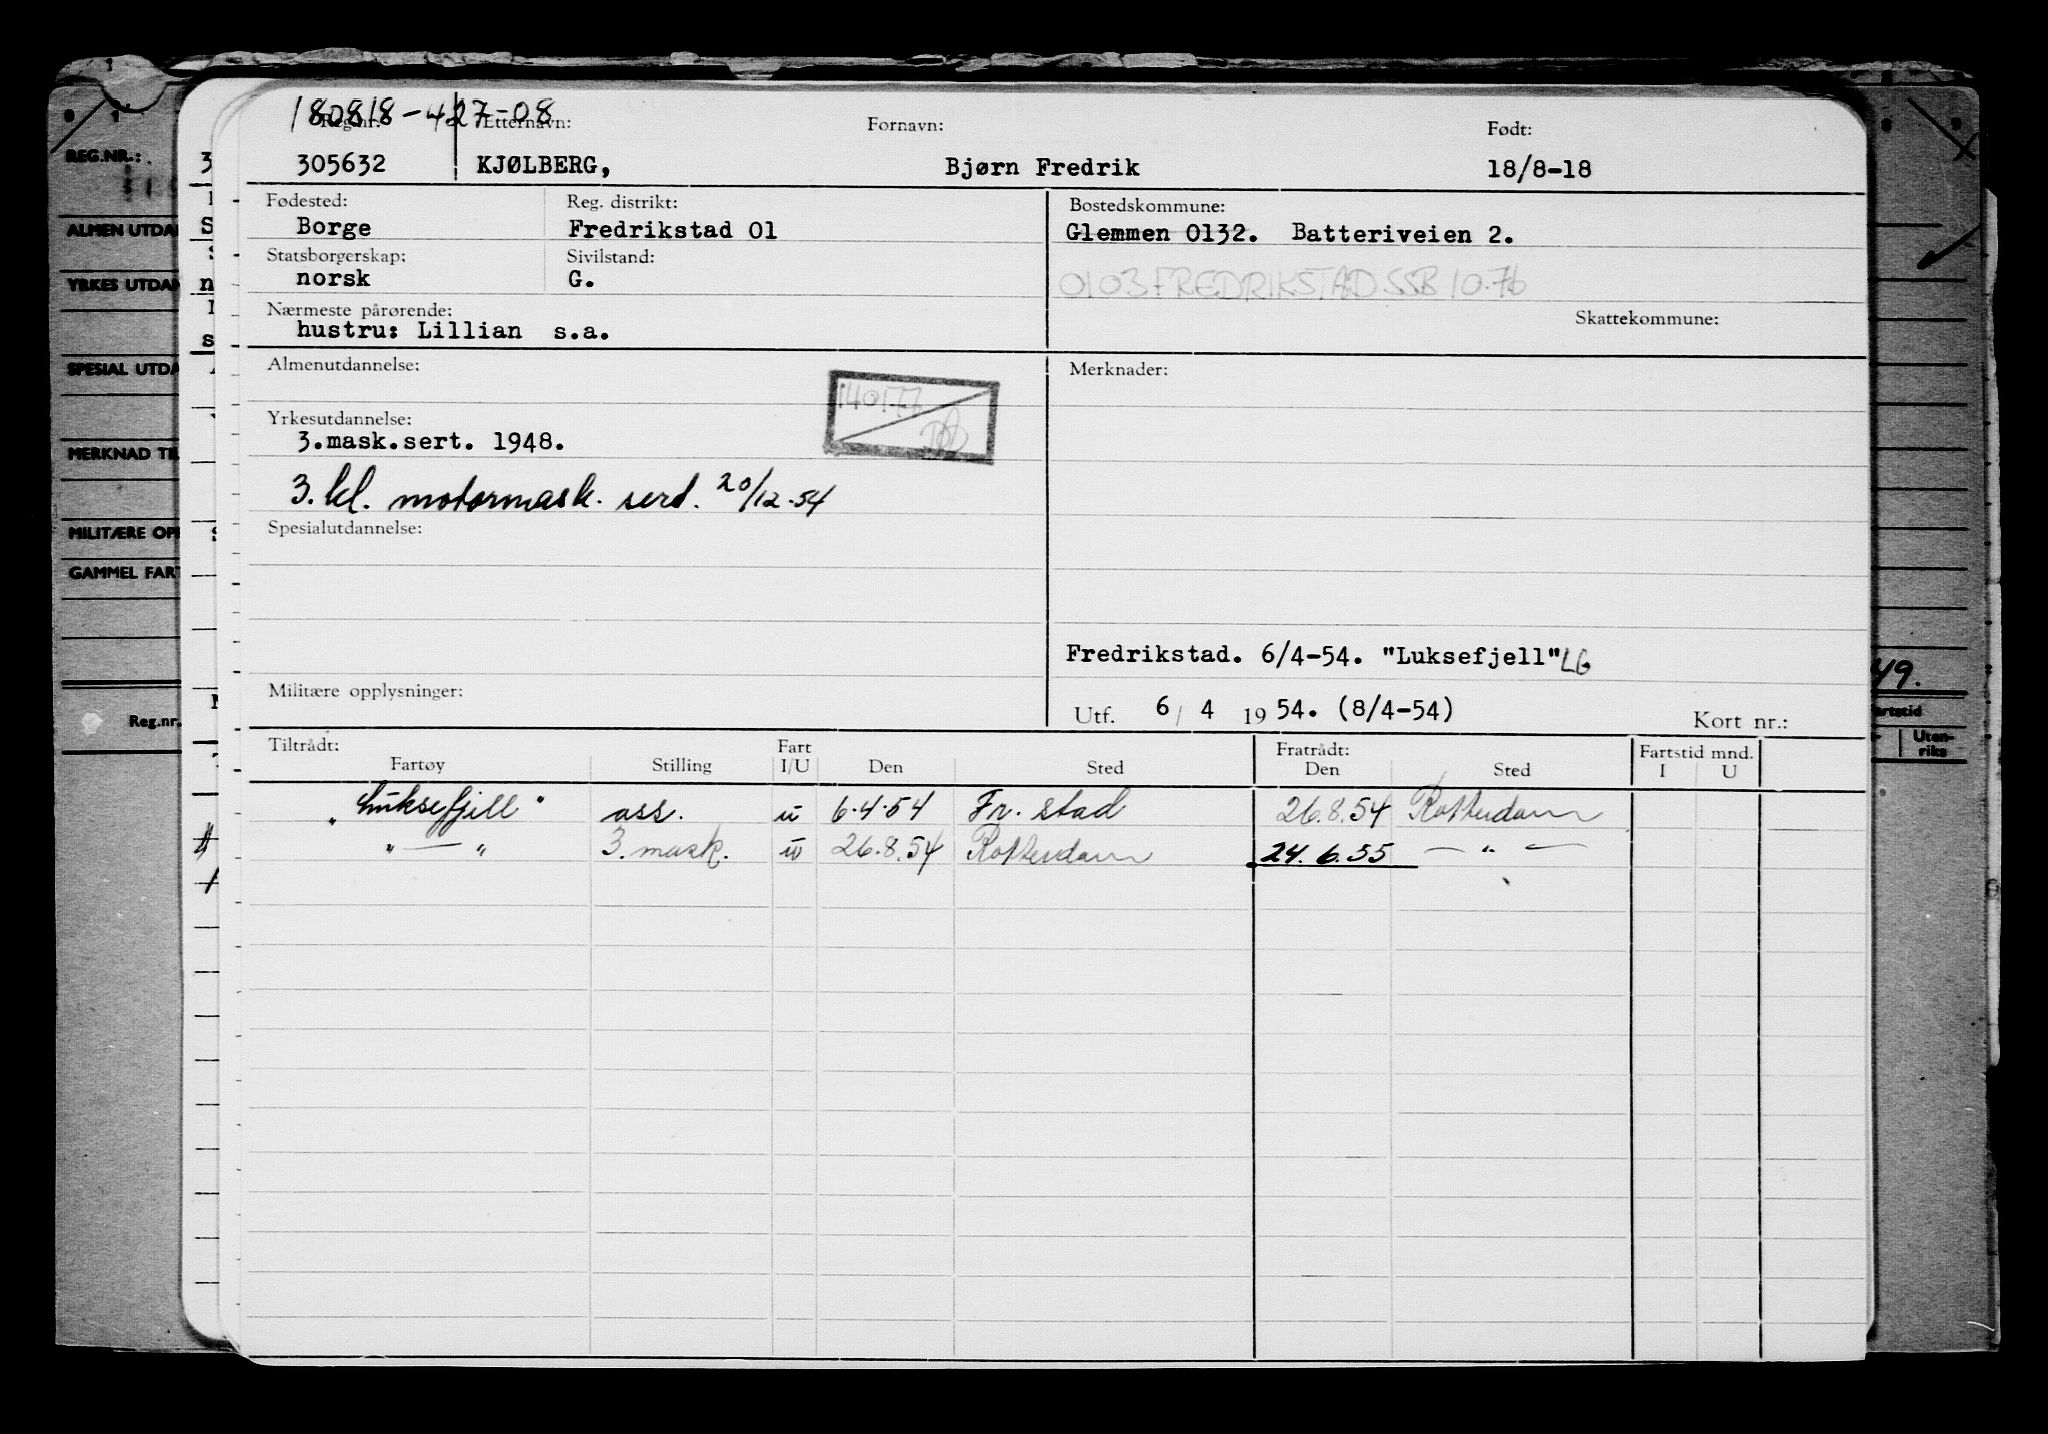 180818-427-08
Reg.nr. Etternavn: Fornavn: Født:
305632 KJØLBERG, Bjørn Fredrik 18/8-18
Fødested: Reg. distrikt: Bostedskommune:
Borge Fredrikstad 01 Glemmen 0132. Batteriveien 2.
Statsborgerskap: Sivilstand:
norsk G. 0103 FREDRIKSTAD SSB 10.76
Nærmeste pårørende: Skattekommune:
hustru: Lillian s.a.
Almenutdannelse: Merknader:
140177
DØD
Yrkesutdannelse:
3.mask.sert. 1948.
3. kl. motormask. sert. 20/12-54
Spesialutdannelse:
Fredrikstad. 6/4-54. "Luksefjell" LG
Militære opplysninger:
Utf. 6/ 4 1954. (8/4-54) Kort nr.:
Tiltrådt: Fart Fratrådt: Fartstid mnd.
Fartøy Stilling I/U Den Sted Den Sted I U
"Luksefjell" ass. u 6.4.54 Fr. stad 26.8.54 Rotterdam
" — " 3. mask. u 26.8.54 Rotterdam 24.6.55 — " —
REG.NR.:
ALMEN UTDA
YRKES UTDAN
SPESIAL UTDA
MERKNAD TIL
MILITÆRE OPP
GAMMEL FART
Reg.nr.
49.
artstid
Uten-
riks